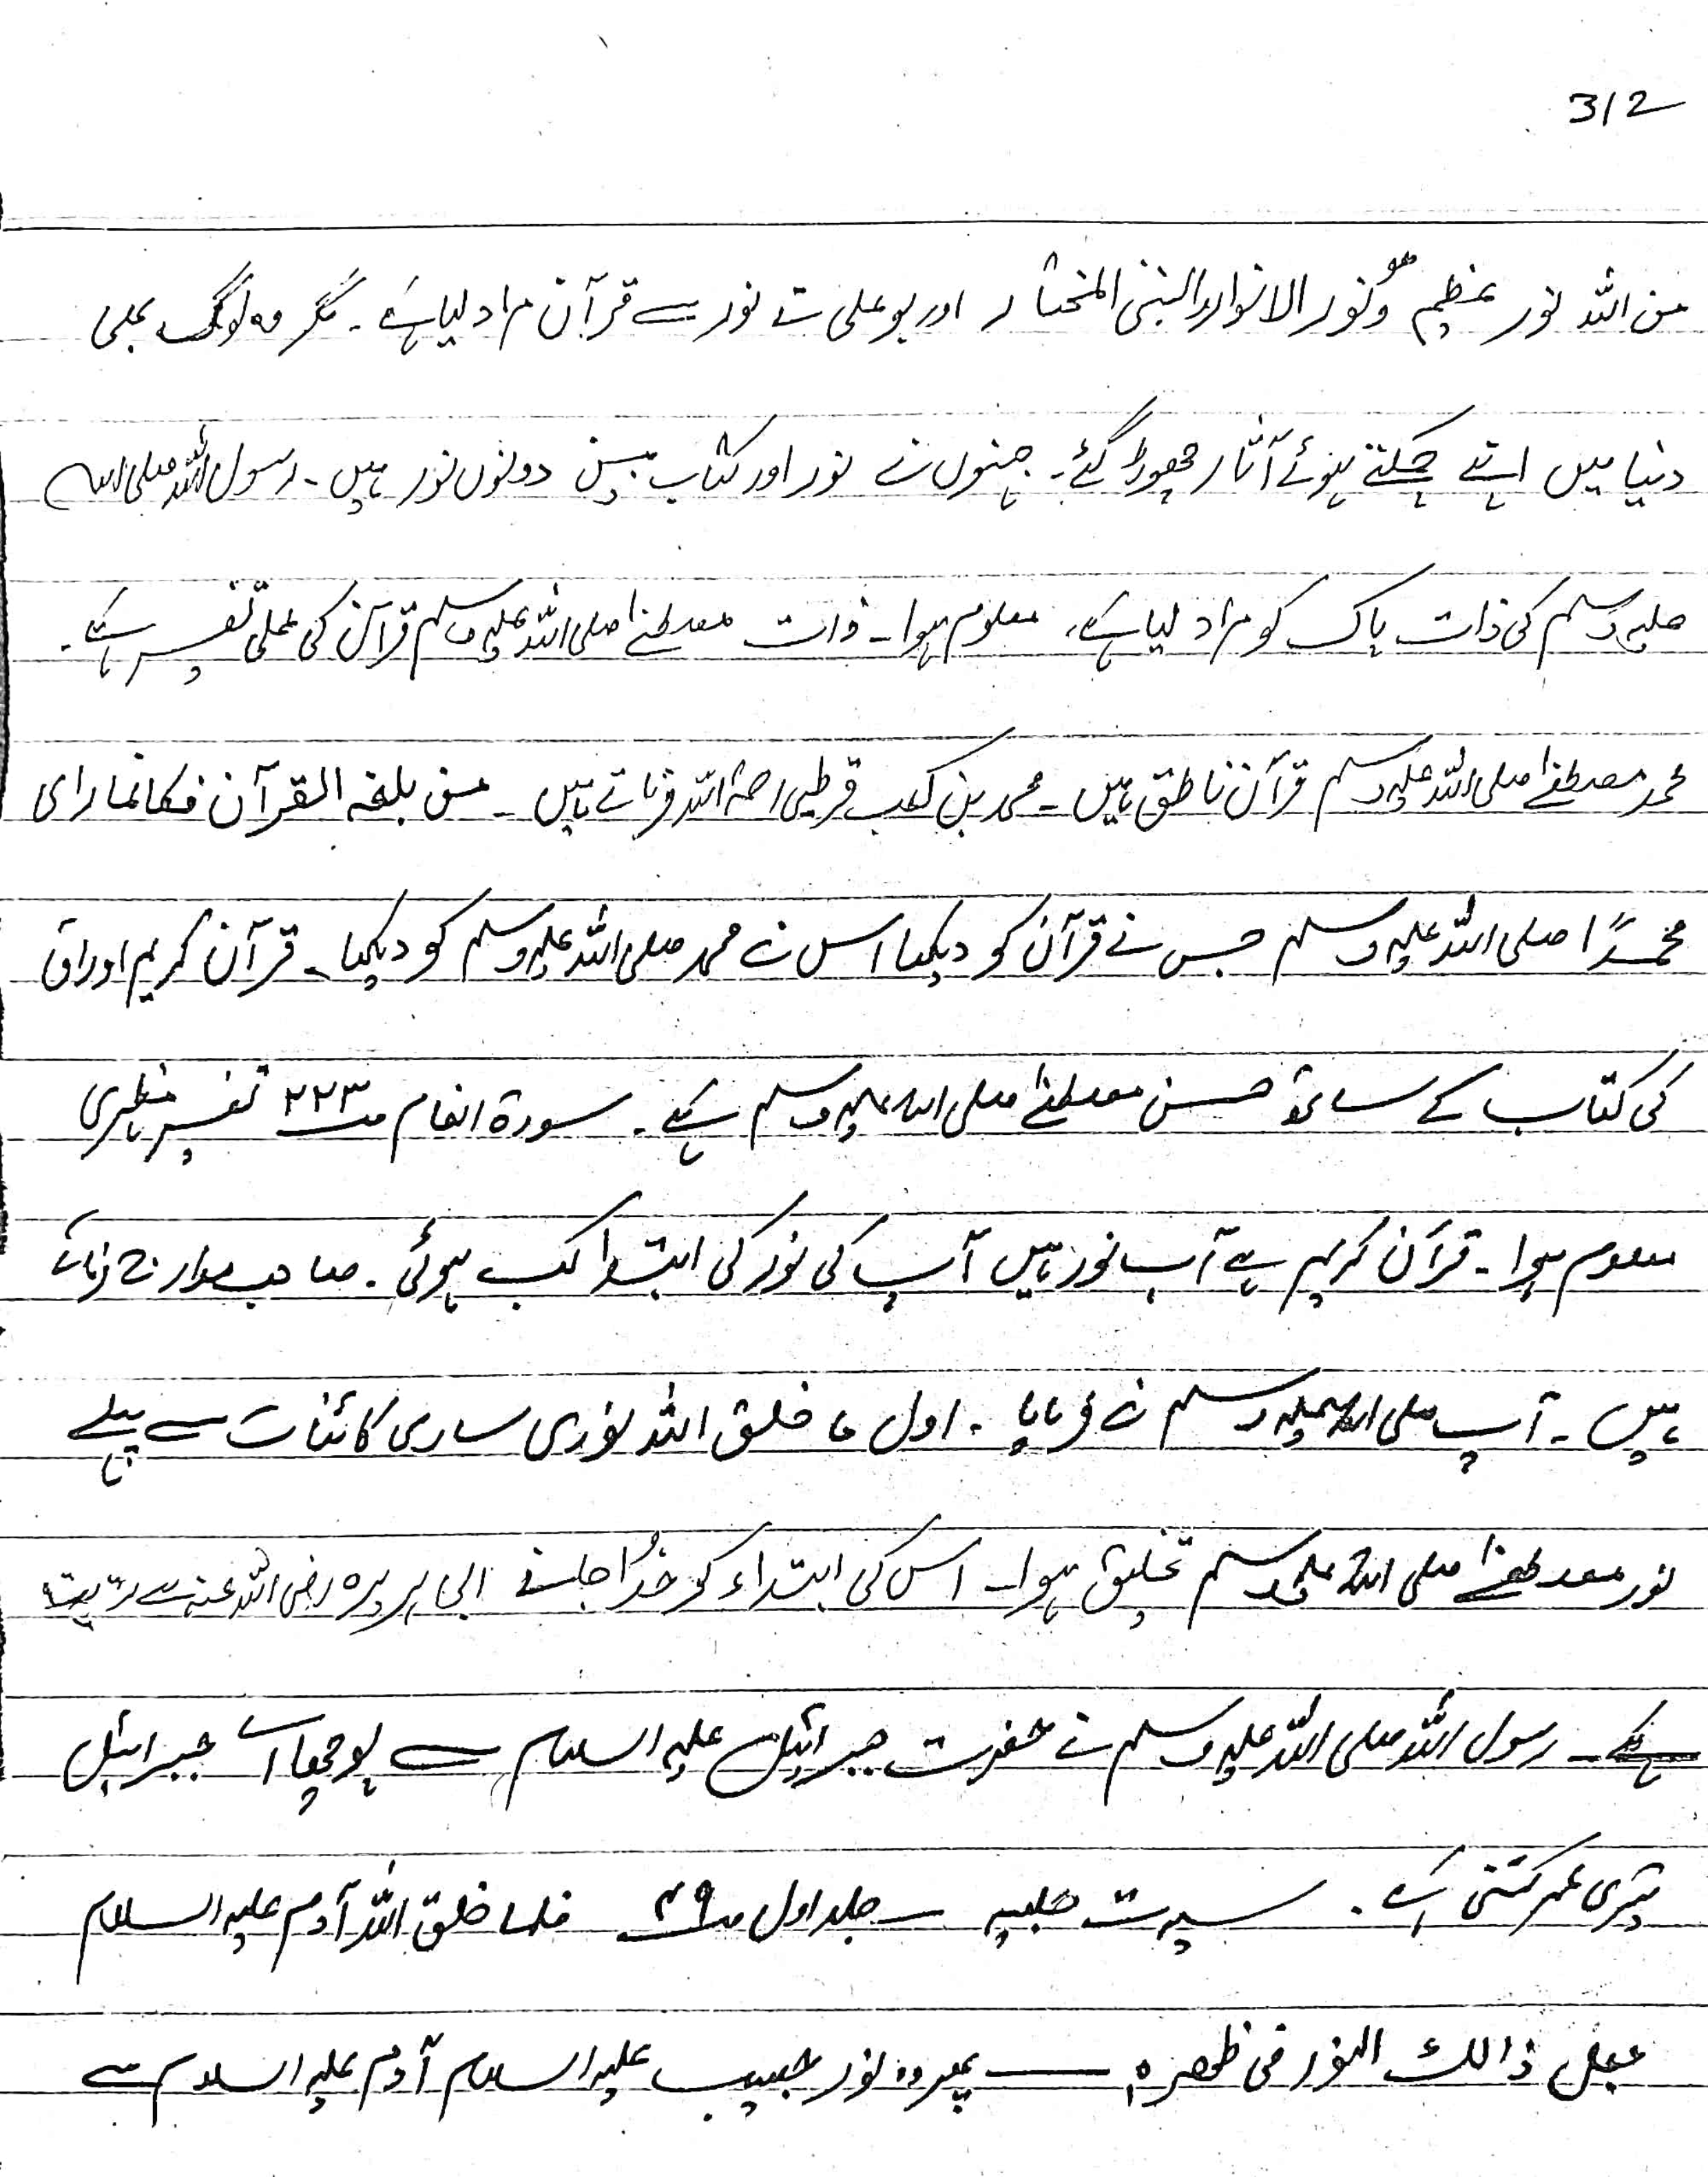 312
من اللہ نور عظیم وھو نور الانوار والنبی المختار اور بو علی نے نور سے قرآن مراد لیا ہے۔ مگر وہ لوگ بھی
دنیا میں اپنے چمکتے ہوئے آثار چھوڑ گئے۔ جنہوں نے نور اور کتاب مبین دونوں نور ہیں۔ رسول اللہ صلی اللہ
علیہ وسلم کی ذات پاک کو مراد لیا ہے، معلوم ہوا۔ ذات مصطفےٰ صلی اللہ علیہ وسلم قرآن کی عملی تفسیر ہے۔
محمد مصطفےٰ صلی اللہ علیہ وسلم قرآن ناطق ہیں۔ محمد بن کعب قرظی رحمۃ اللہ فرماتے ہیں۔ من بلغہ القرآن فکانما رای
محمدًا صلی اللہ علیہ وسلم جس نے قرآن کو دیکھا اس نے محمد صلی اللہ علیہ وسلم کو دیکھا۔ قرآن کریم اوراق
کی کتاب کے ساتھ حسن مصطفےٰ صلی اللہ علیہ وسلم ہے۔ سورۃ انعام صـ ۲۲۳ تفسیر مظہری
معلوم ہوا۔ قرآن کریم سے آپ نور ہیں آپ کی نور کی ابتدا کب ہوئی۔ صاحب معارج فرماتے
ہیں۔ آپ صلی اللہ علیہ وسلم نے فرمایا۔ اول ما خلق اللہ نوری ساری کائنات سے پہلے
نور مصطفےٰ صلی اللہ علیہ وسلم تخلیق ہوا۔ اس کی ابتداء کو خُدا جانے ابی ہریرہ رضی اللہ عنہ سے روایت
ہے۔ رسول اللہ صلی اللہ علیہ وسلم نے حضرت جبرائیل علیہ السلام سے پوچھا اے جبرائیل
تیری عمر کتنی ہے۔ سیرت حلبیہ جلد اول صـ ۴۹ فلما خلق اللہ آدم علیہ السلام
جعل ذالک النور فی ظھرہ ـــ پھر وہ نور حبیب علیہ السلام آدم علیہ السلام سے